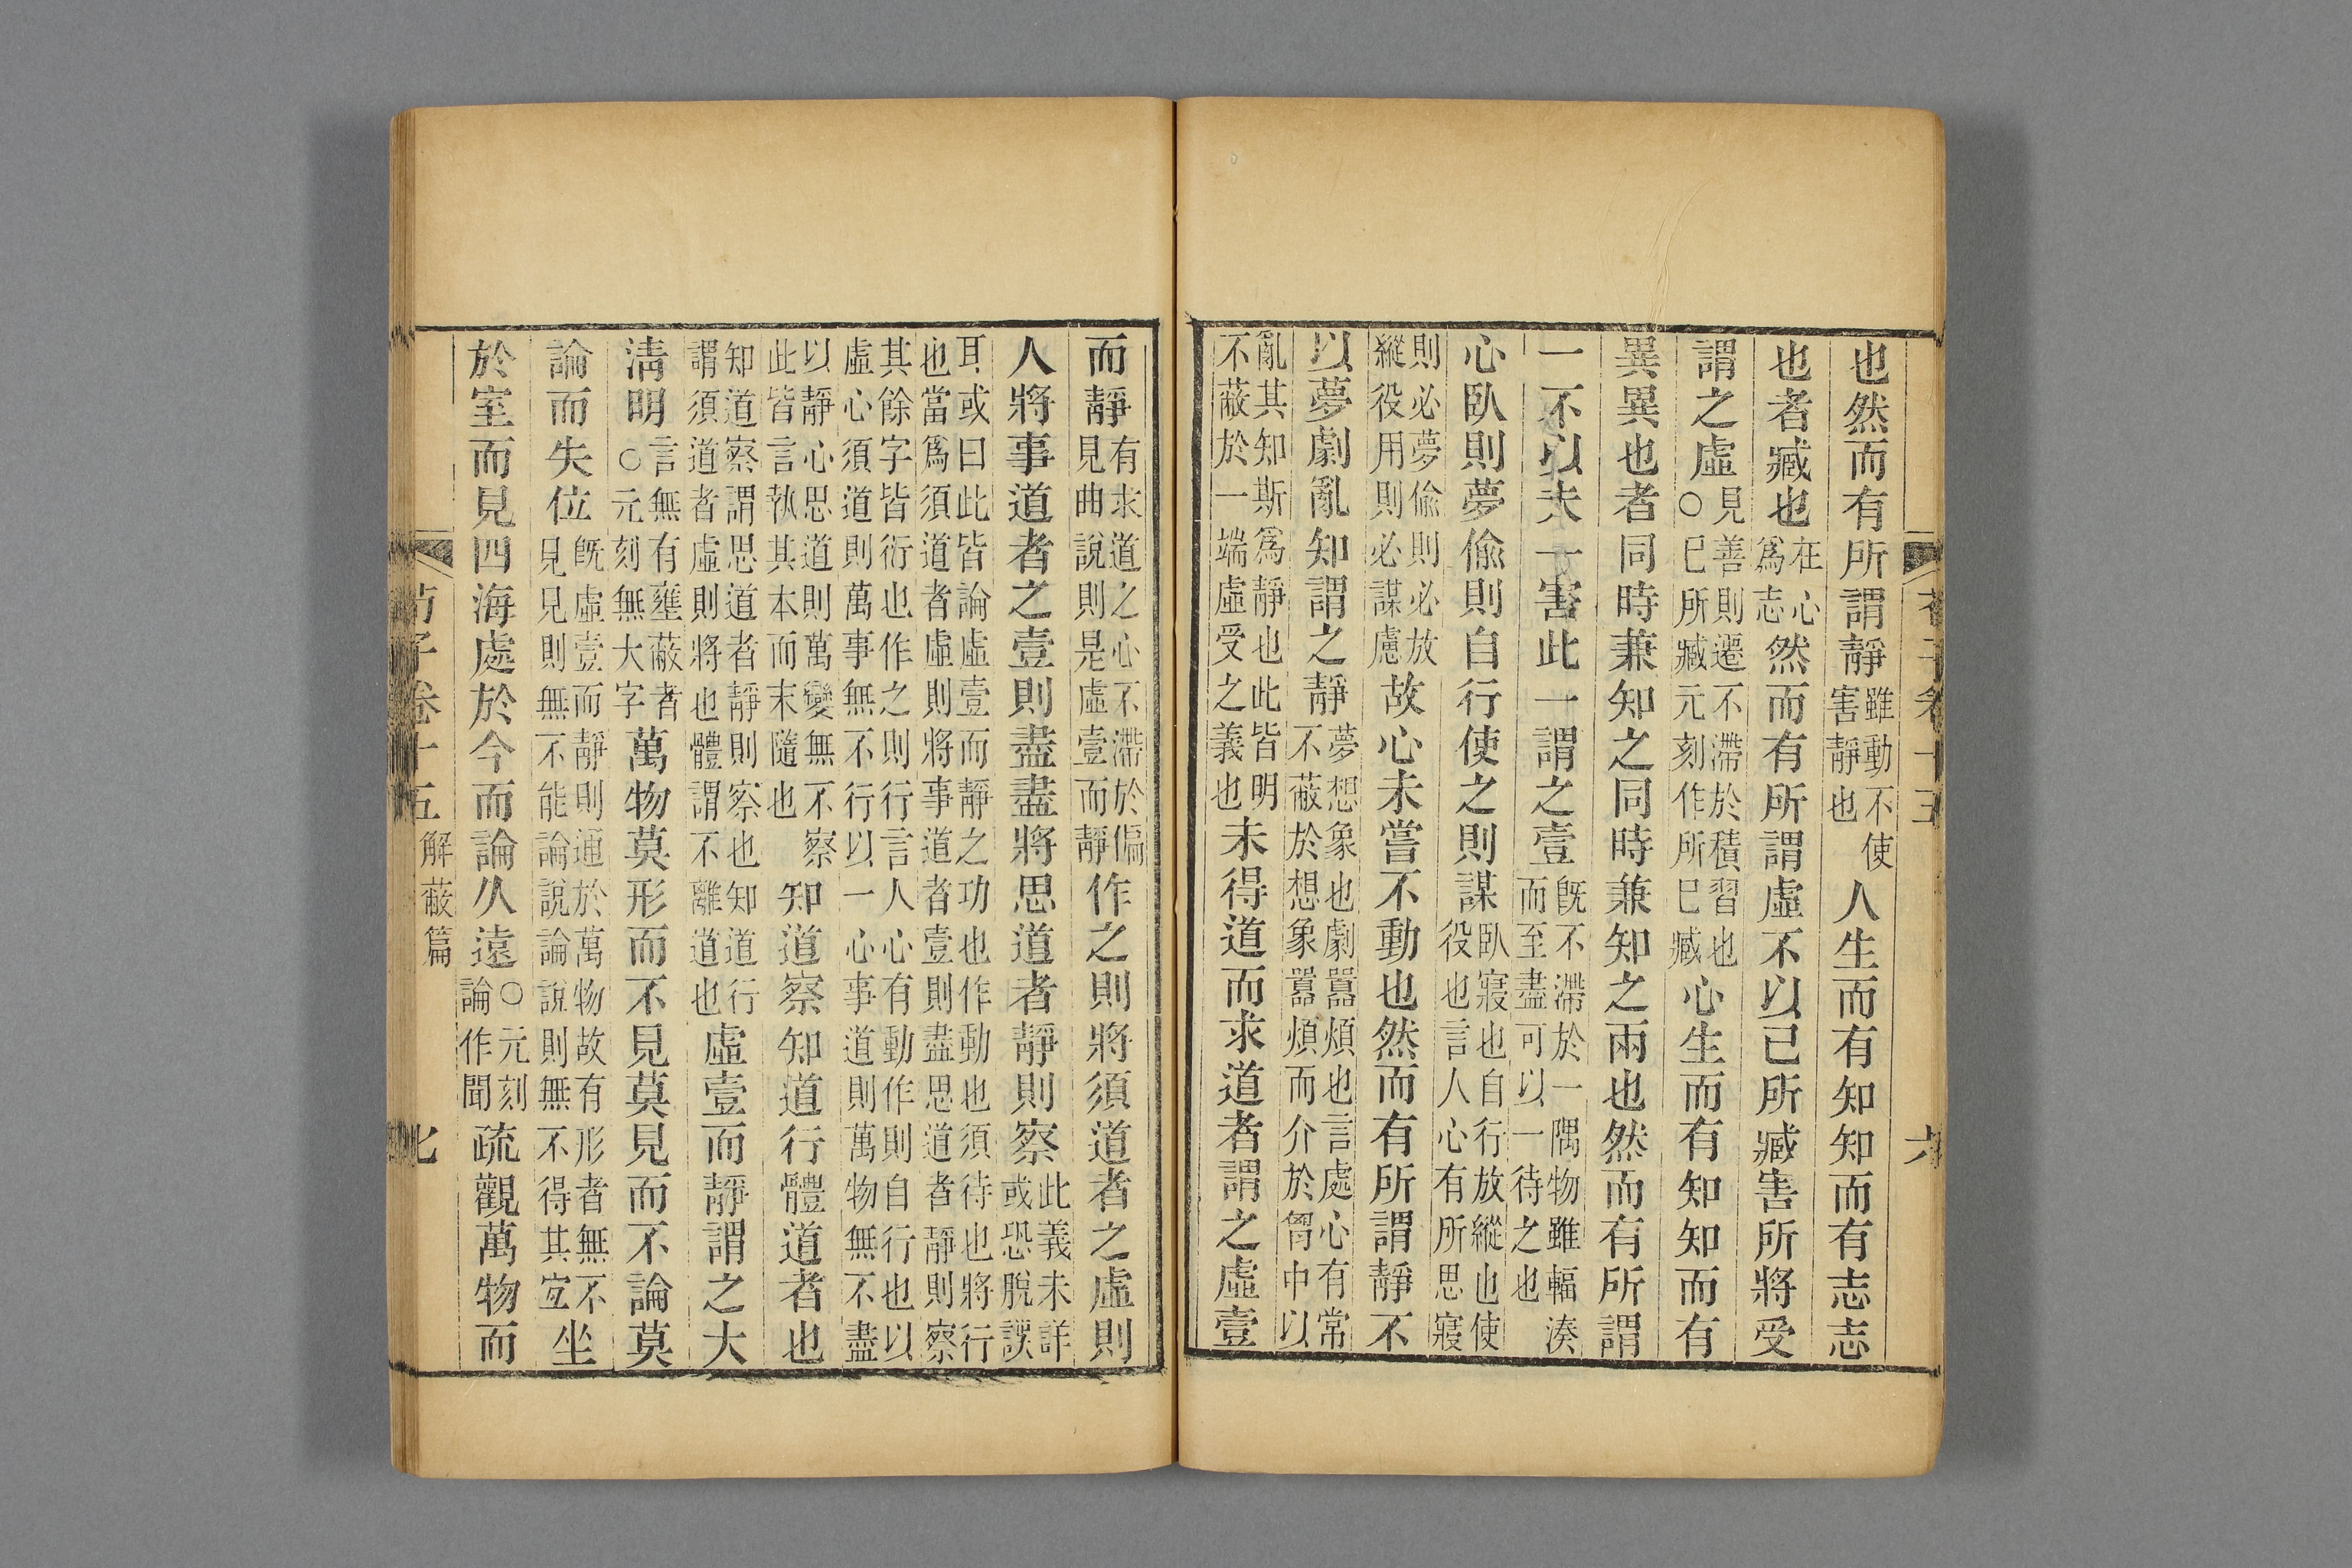 也然而有所謂靜雖動不使害靜也人生而有知知而有志志
也者臧也在心爲志然而有所謂虛不以己所臧害所將受
謂之虛○見善則遷不滯於積習也已所臧元刻作所已臧心生而有知知而有
異異也者同時兼知之同時兼知之兩也然而有所謂
一不以夫一害此一謂之壹既不滯於一隅物雖輻湊而至盡可以一待之也
心臥則夢偷則自行使之則謀臥寢也自行放縱也使役也言人心有所思寢
則必夢偷則必放縱役用則必謀慮故心未嘗不動也然而有所謂靜不
以夢劇亂知謂之靜夢想象也劇囂煩也言處心有常不蔽於想象囂煩而介於胷中以
亂其知斯爲靜也此皆明不蔽於一端虛受之義也未得道而求道者謂之虛壹
荀子卷十五 六
而靜有求道之心不滯於偏見曲說則是虛壹而靜作之則將須道者之虛則
人將事道者之壹則盡盡將思道者靜則察此義未詳或恐脫誤
耳或曰此皆論虛壹而靜之功也作動也須待也將行也當爲須道者虛則將事道者壹則盡思道者靜則察
其餘字皆衍也作之則行言人心有動作則自行也以虛心須道則萬事無不行以一心事道則萬物無不盡
以靜心思道則萬變無不察此皆言執其本而末隨也知道察知道行體道者也
知道察謂思道者靜則察也知道行謂須道者虛則將也體謂不離道也虛壹而靜謂之大
淸明言無有壅蔽者○元刻無大字萬物莫形而不見莫見而不論莫
論而失位既虛壹而靜則通於萬物故有形者無不見見則無不能論說論說則無不得其宐坐
於室而見四海處於今而論久遠○元刻論作聞疏觀萬物而
荀子卷十五 解蔽篇 七